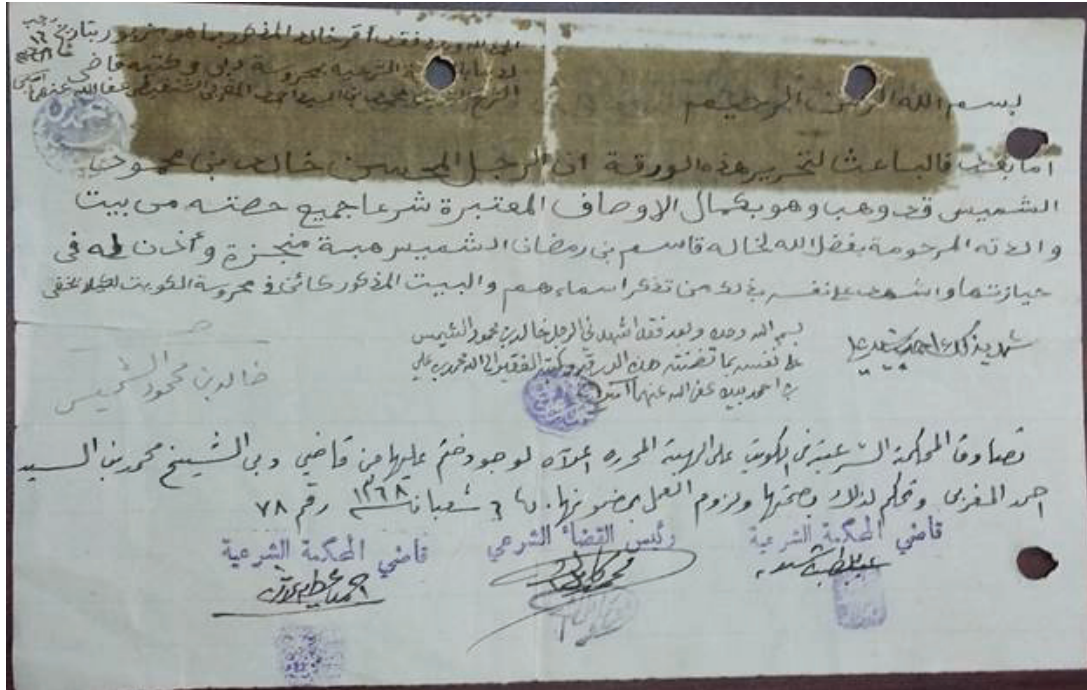 الحمد لله وحده فقد أقر خالد المذكور بما هو مزبور بتاريخ ١٦ رجب
لدينا بالمحكمة الشرعية بمحروسة دبي وكتبه قاضي
الشرع الشريف محمد بن السيد أحمد المغربي الشنقيطي عفا الله عنهما آمين
بسم الله الرحمن الرحيم
اما بعد فالباعث لتحرير هذه الورقة ان الرجل المحسن خالد بن محمود
الشميس قد وهب وهو بكمال الاوصاف المعتبرة شرعا جميع حصته من بيت
والدته المرحومة بفضل الله لخاله قاسم بن رمضان الشميس هبة منجزة وأذن له في
حيازتها واشهد على نفسه بذلك من تذكر اسماءهم والبيت المذكور كائن في محروسة الكويت لكيلا يخفى
بسم الله وحده وبعد فقد اشهدني الرجل خالد بن محمود الشميس
على نفسه بما تضمنته هذه الورقة وكتبه الفقير الى الله محمد بن علي
بن احمد عفى الله عنهما آمين
شهد بذلك احمد
خالد بن محمود الشميس
تصادق المحكمة الشرعية في الكويت على الهبة المحرره اعلاه لوجود ختم عليها من قاضي دبي الشيخ محمد بن السيد
احمد المغربي وتحكم لذلك بصحتها ولزوم العمل بمضمونها. في ٣ شعبان سنة ١٣٦٨ رقم ٧٨
قاضي المحكمة الشرعية
رئيس القضاء الشرعي
قاضي المحكمة الشرعية
احمد عطية